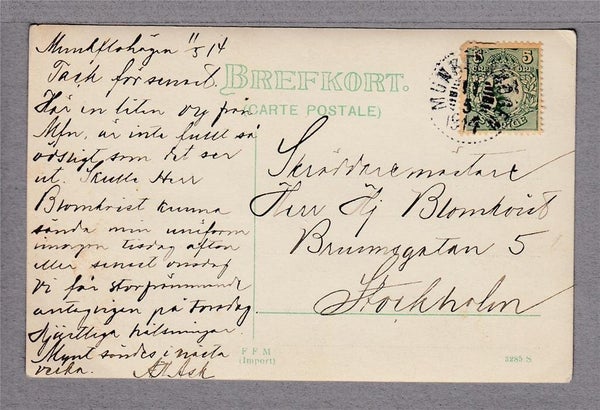 Munkflohögen 11/5 14
Tack för senast.
Här en liten vy från
Mfn, är inte fullt så
ödsligt som det ser
ut. Skulle Herr
Blomkvist kunna
sända min uniform
imorgon tisdag afton
eller senast onsdag
vi får storfrämmande
antagligen på torsdag.
Hjärtliga hälsningar.
Mynt sändes i nästa
vecka. Ask
BREFKORT.
(CARTE POSTALE)
5 5
11 5
1914
Skräddaremästare
Herr Hj Blomkvist
Brunnsgatan 5
Stockholm
F F M
(Import)
5285 S